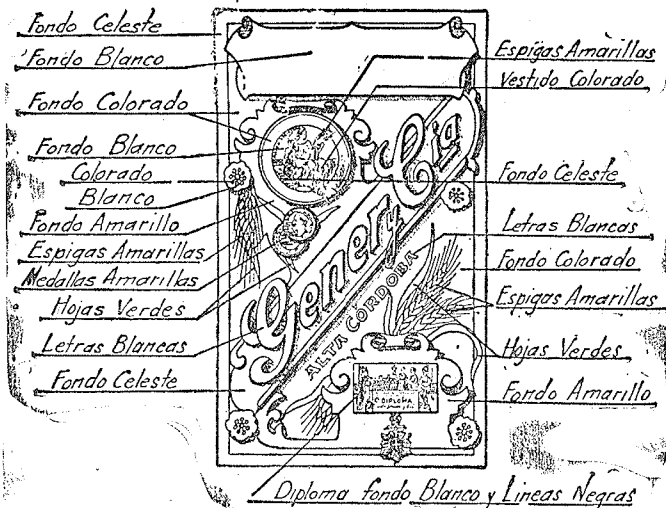 Fondo Celeste
Fondo Blanco
Fondo Colorado
Fondo Blanco
Colorado
Blanco
Fondo Amarillo
Espigas Amarillas
Medallas Amarillas
Hojas Verdes
Letras Blancas
Fondo Celeste
Gener y Cia
ALTA CORDOBA
DIPLOMA
Espigas Amarillas
Vestido Colorado
Fondo Celeste
Letras Blancas
Fondo Colorado
Espigas Amarillas
Hojas Verdes
Fondo Amarillo
Diploma fondo Blanco y Lineas Negras